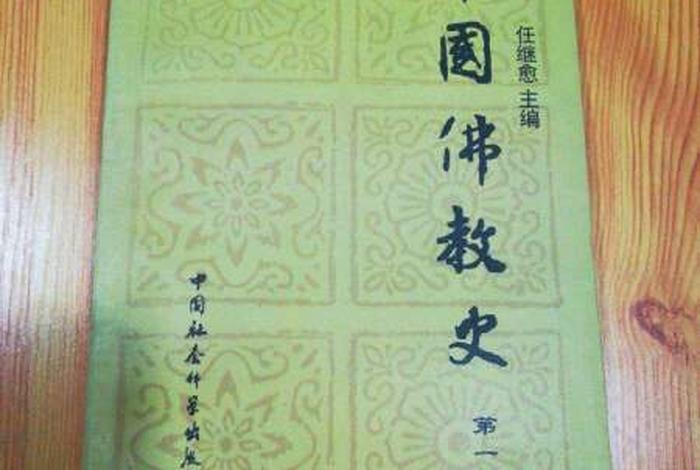 任继愈 主编
國佛教史
第一
中国社会科学出版